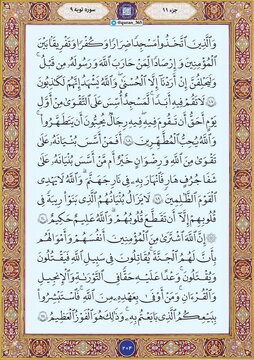 جزء ۱۱
@quran_365
سوره توبه ۹
وَٱلَّذِينَ ٱتَّخَذُوا۟ مَسْجِدًا ضِرَارًا وَكُفْرًا وَتَفْرِيقًۢا بَيْنَ
ٱلْمُؤْمِنِينَ وَإِرْصَادًا لِّمَنْ حَارَبَ ٱللَّهَ وَرَسُولَهُۥ مِن قَبْلُ ۚ
وَلَيَحْلِفُنَّ إِنْ أَرَدْنَآ إِلَّا ٱلْحُسْنَىٰ ۖ وَٱللَّهُ يَشْهَدُ إِنَّهُمْ لَكَٰذِبُونَ
۝١٠٧ لَا تَقُمْ فِيهِ أَبَدًا ۚ لَّمَسْجِدٌ أُسِّسَ عَلَى ٱلتَّقْوَىٰ مِنْ أَوَّلِ
يَوْمٍ أَحَقُّ أَن تَقُومَ فِيهِ ۚ فِيهِ رِجَالٌ يُحِبُّونَ أَن يَتَطَهَّرُوا۟ ۚ
وَٱللَّهُ يُحِبُّ ٱلْمُطَّهِّرِينَ ۝١٠٨ أَفَمَنْ أَسَّسَ بُنْيَٰنَهُۥ عَلَىٰ
تَقْوَىٰ مِنَ ٱللَّهِ وَرِضْوَٰنٍ خَيْرٌ أَم مَّنْ أَسَّسَ بُنْيَٰنَهُۥ عَلَىٰ
شَفَا جُرُفٍ هَارٍ فَٱنْهَارَ بِهِۦ فِى نَارِ جَهَنَّمَ ۗ وَٱللَّهُ لَا يَهْدِى
ٱلْقَوْمَ ٱلظَّٰلِمِينَ ۝١٠٩ لَا يَزَالُ بُنْيَٰنُهُمُ ٱلَّذِى بَنَوْا۟ رِيبَةً فِى
قُلُوبِهِمْ إِلَّآ أَن تَقَطَّعَ قُلُوبُهُمْ ۗ وَٱللَّهُ عَلِيمٌ حَكِيمٌ ۝١١٠
۞ إِنَّ ٱللَّهَ ٱشْتَرَىٰ مِنَ ٱلْمُؤْمِنِينَ أَنفُسَهُمْ وَأَمْوَٰلَهُم
بِأَنَّ لَهُمُ ٱلْجَنَّةَ ۚ يُقَٰتِلُونَ فِى سَبِيلِ ٱللَّهِ فَيَقْتُلُونَ
وَيُقْتَلُونَ ۖ وَعْدًا عَلَيْهِ حَقًّا فِى ٱلتَّوْرَىٰةِ وَٱلْإِنجِيلِ
وَٱلْقُرْءَانِ ۚ وَمَنْ أَوْفَىٰ بِعَهْدِهِۦ مِنَ ٱللَّهِ ۚ فَٱسْتَبْشِرُوا۟
بِبَيْعِكُمُ ٱلَّذِى بَايَعْتُم بِهِۦ ۚ وَذَٰلِكَ هُوَ ٱلْفَوْزُ ٱلْعَظِيمُ ۝١١١
۲۰۴